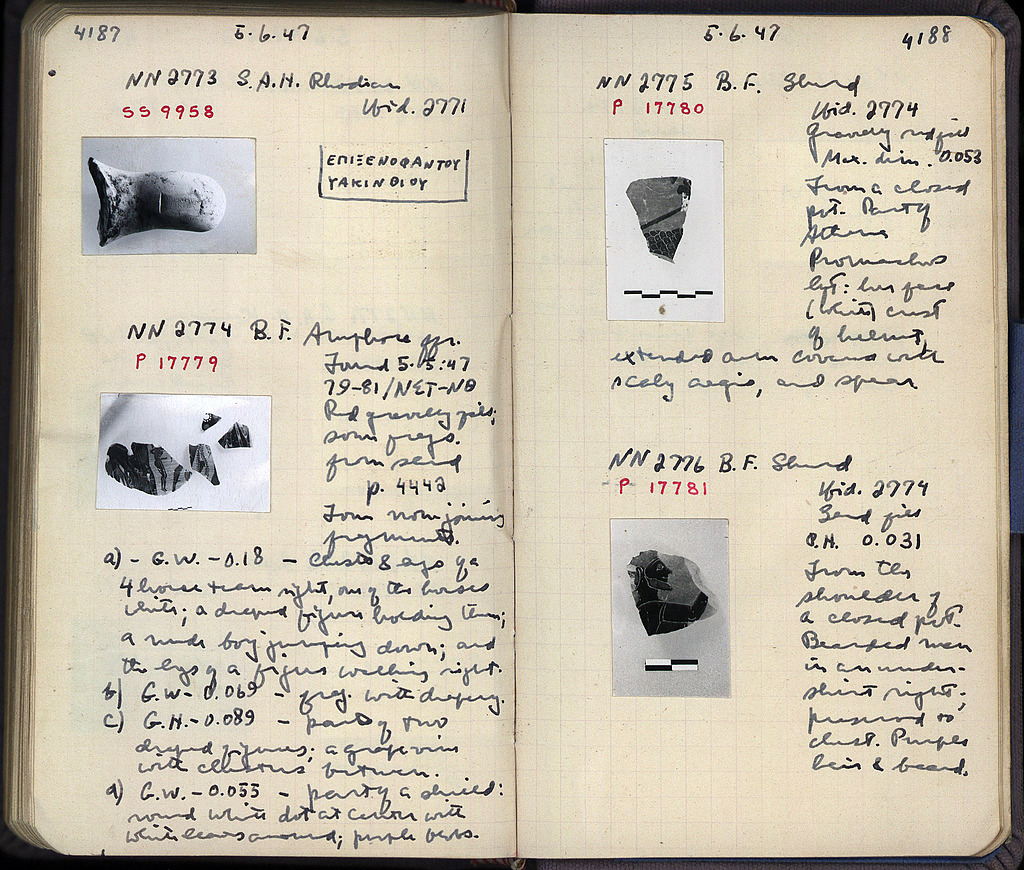 4187
5·6·47
NN 2773 S.A.H. Rhodian
SS 9958
Ibid. 2771
ΕΠΙΞΕΝΟΦΑΝΤΟΥ
ΥΑΚΙΝΘΙΟΥ
NN 2774 B.F. Amphora
P 17779
Found 5·5·47
79-81/ΝΣΤ-ΝΘ
Red gravelly fill;
some frags.
from sand
p. 4442
Four nonjoining
fragments.
a) - G.W. - 0.18 - chests & legs of a
4 horse team right, one of the horses
white; a draped figure holding them;
a nude boy jumping down; and
the legs of a figure walking right.
b) G.W - 0.069 - frag. with drapery.
c) G.H. - 0.089 - part of two
draped figures; a grape vine
with clusters between.
d) G.W. - 0.055 - part of a shield:
round white dot at center with
white leaves around; purple
5·6·47
4188
NN 2775 B.F. Sherd
P 17780
Ibid. 2774
Gravelly red fill
Max. dim. 0.053
From a closed
pot. Part of
Athena
Promachos
left: her face
(white) crest
of helmet,
extended arm covered with
scaly aegis, and spear
NN 2776 B.F. Sherd
P 17781
Ibid. 2774
Sand fill
P.H. 0.031
From the
shoulder of
a closed pot.
Bearded man
in an under-
shirt right;
preserved to
chest. Purple
hair & beard.